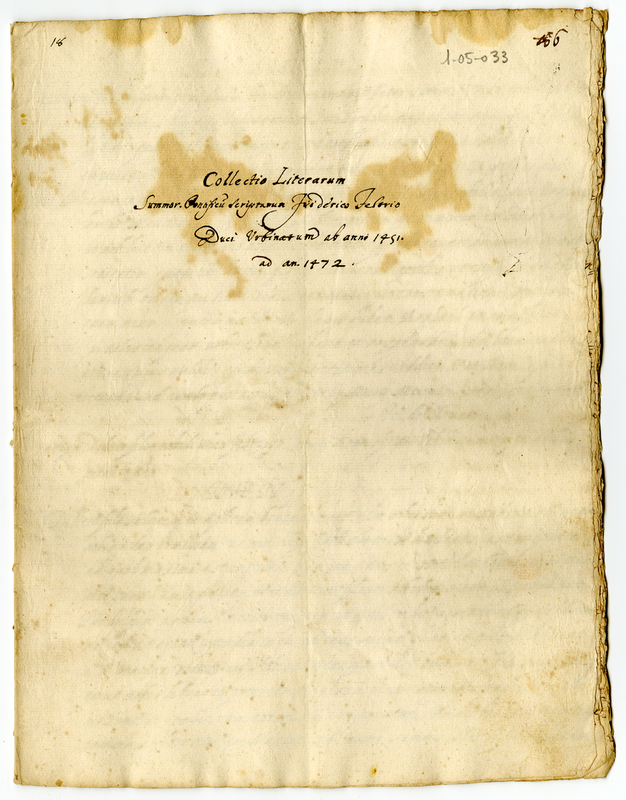 18
1-05-033
Collectio Literarum
Summor. Pontificū scriptarum Friderico Feltrio
Duci Urbinatum ab anno 1451.
ad an. 1472.